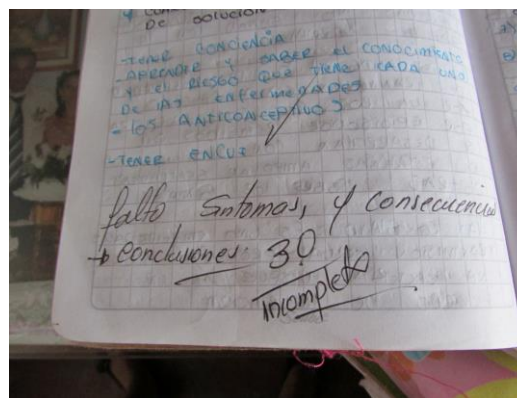 DE SOLUCIÓN
-TENER CONCIENCIA
-APRENDER Y SABER EL CONOCIMIENTO
Y EL RIESGO QUE TIENE CADA UNO
DE LAS ENFERMEDADES
-LOS ANTICONCEPTIVOS
-TENER
falto Sintomas, y consecuencias
→ conclusiones. 30
incompleto